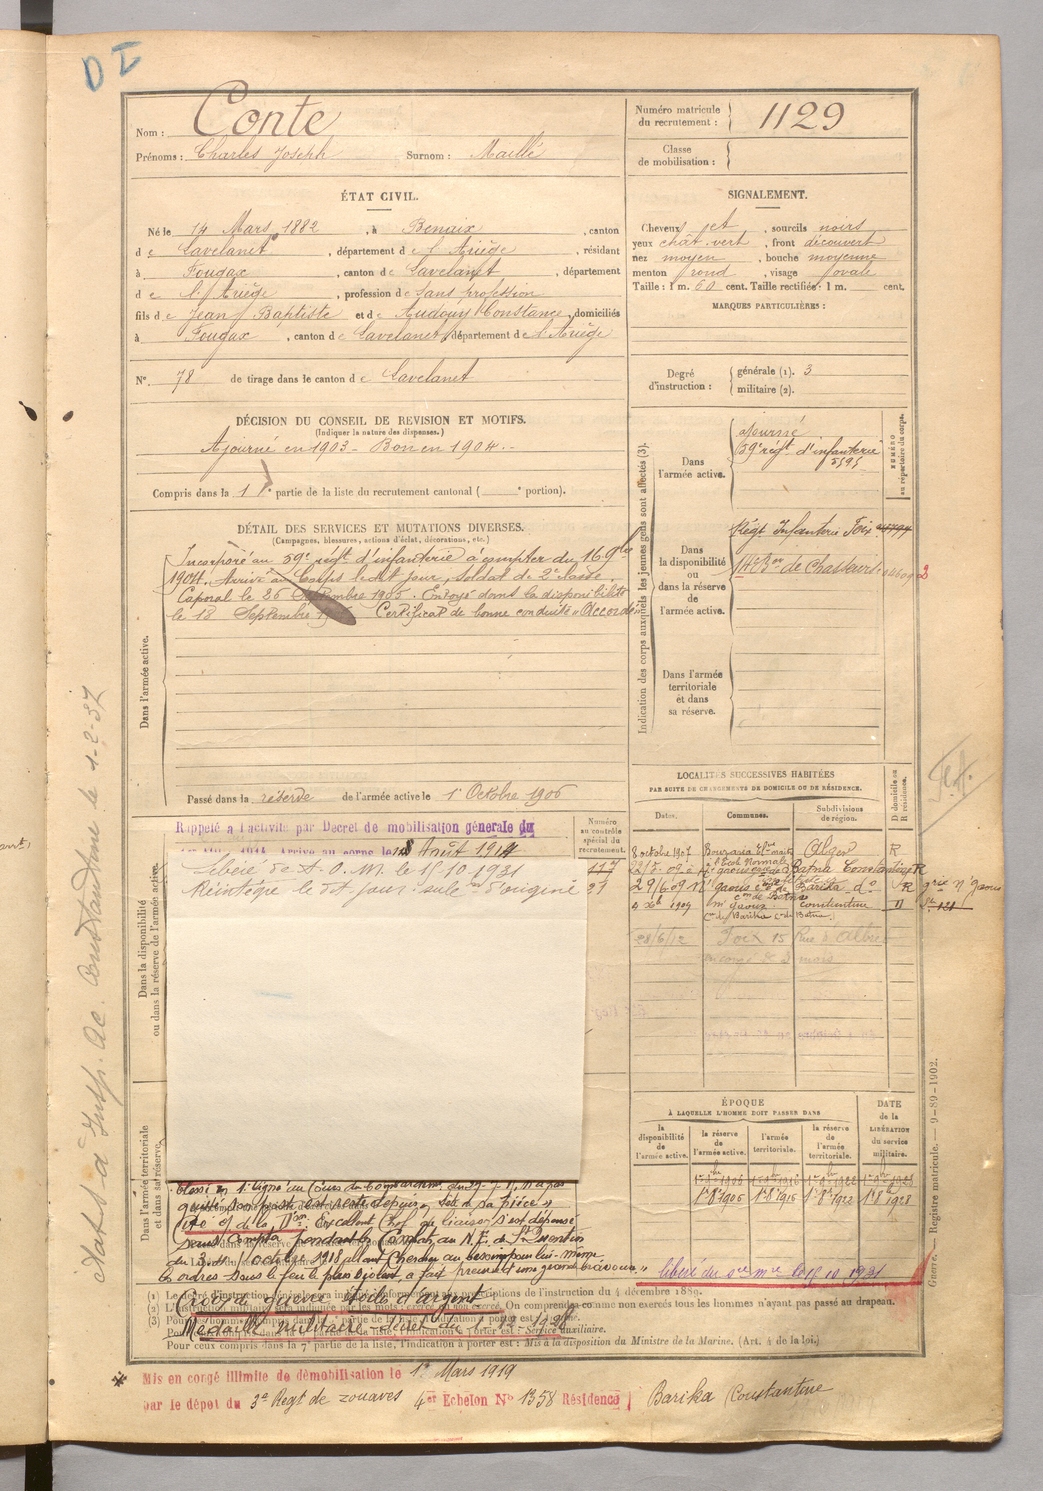 D I
Nom : Conte
Prénoms : Charles Joseph Surnom : Maillé
Numéro matricule du recrutement : 1129
Classe de mobilisation :
ÉTAT CIVIL.
Né le 14 Mars 1882, à Benaix, canton
de Lavelanet, département de l'Ariège, résidant
à Fougax, canton de Lavelanet, département
de l'Ariège, profession de sans profession
fils de Jean Baptiste et de Audouy Constance, domiciliés
à Fougax, canton de Lavelanet, département de l'Ariège
N° 78 de tirage dans le canton de Lavelanet
SIGNALEMENT.
Cheveux jet, sourcils noirs
yeux chât. vert, front découvert
nez moyen, bouche moyenne
menton rond, visage ovale
Taille : 1 m. 60 cent. Taille rectifiée : 1 m. cent.
MARQUES PARTICULIÈRES :
Degré d'instruction : générale (1). 3
militaire (2).
DÉCISION DU CONSEIL DE REVISION ET MOTIFS.
(Indiquer la nature des dispenses.)
Ajourné en 1903 - Bon en 1904.-
Compris dans la 1 partie de la liste du recrutement cantonal ( portion).
DÉTAIL DES SERVICES ET MUTATIONS DIVERSES.
(Campagnes, blessures, actions d'éclat, décorations, etc.)
Dans l'armée active.
Incorporé au 59e régt d'infanterie à compter du 16 9bre
1904. Arrivé au Corps le dit jour, soldat de 2e classe.
Caporal le 26 Septembre 1905. Envoyé dans la disponibilité
le 18 Septembre Certificat de bonne conduite "Accordé"
Passé dans la réserve de l'armée active le 1er Octobre 1906
Indication des corps auxquels les jeunes gens sont affectés (3).
NUMÉRO au répertoire du corps.
Dans l'armée active.
Ajourné
59e régt d'infanterie
5595
Dans la disponibilité ou dans la réserve de l'armée active.
Régt Infanterie Foix
Bon de Chasseurs
Dans l'armée territoriale et dans sa réserve.
LOCALITÉS SUCCESSIVES HABITÉES
PAR SUITE DE CHANGEMENTS DE DOMICILE OU DE RÉSIDENCE.
Dates. Communes. Subdivisions de région. D domicile ou R résidence.
8 octobre 1907 Bouzaréa Alger R
à l'École Normale
Batna Constantine R
29/6/09 N'gaous Barika do R
N'gaous constantine
28/6/12 Foix 15 Rue
en congé de 3 mois
Dans la disponibilité ou dans la réserve de l'armée active.
Numéro au contrôle spécial du recrutement.
Rappelé à l'activité par Décret de mobilisation générale du
Arrivé au corps le Août 1914
Libéré du S. O. M. le 15.10.1931
Réintègre le dit jour sa subon d'origine
117
31
Dans l'armée territoriale et dans sa réserve.
ÉPOQUE
À LAQUELLE L'HOMME DOIT PASSER DANS
la disponibilité de l'armée active. la réserve de l'armée active. l'armée territoriale. la réserve de l'armée territoriale.
DATE de la LIBÉRATION du service militaire.
1er 8bre 1906 1er 8bre 1916 1er 8bre 1922 1er 8bre 1928
blessé en 1ère ligne au cours du bombardement du n'a pas
quitté son poste est resté depuis
Cité Excellent Chef de liaison s'est dépensé
sans compter pendant les combats au N.E. de St Quentin
du 3 au octobre 1918 allant chercher au besoin lui-même
les ordres sous le feu le plus violent, a fait preuve d'une grande bravoure"
libéré du sce mre le 15.10.1931
(1) Le degré d'instruction générale sera indiqué conformément aux prescriptions de l'instruction du 4 décembre 1889.
Croix de guerre étoile d'argent
(2) L'instruction militaire sera indiquée par les mots : exercé ou non exercé. On comprendra comme non exercés tous les hommes n'ayant pas passé au drapeau.
Médaille militaire - décret du
Service auxiliaire.
Pour ceux compris dans la 7e partie de la liste, l'indication à porter est : Mis à la disposition du Ministre de la Marine. (Art. 4 de la loi.)
Mis en congé illimité de démobilisation le 1er Mars 1919
par le dépot du 3e Régt de zouaves 4er Echelon No 1358 Résidence Barika Constantine
Guerre — Registre matricule. — 9-89-1902.
Insp. Ac. Constantine le 1-2-37